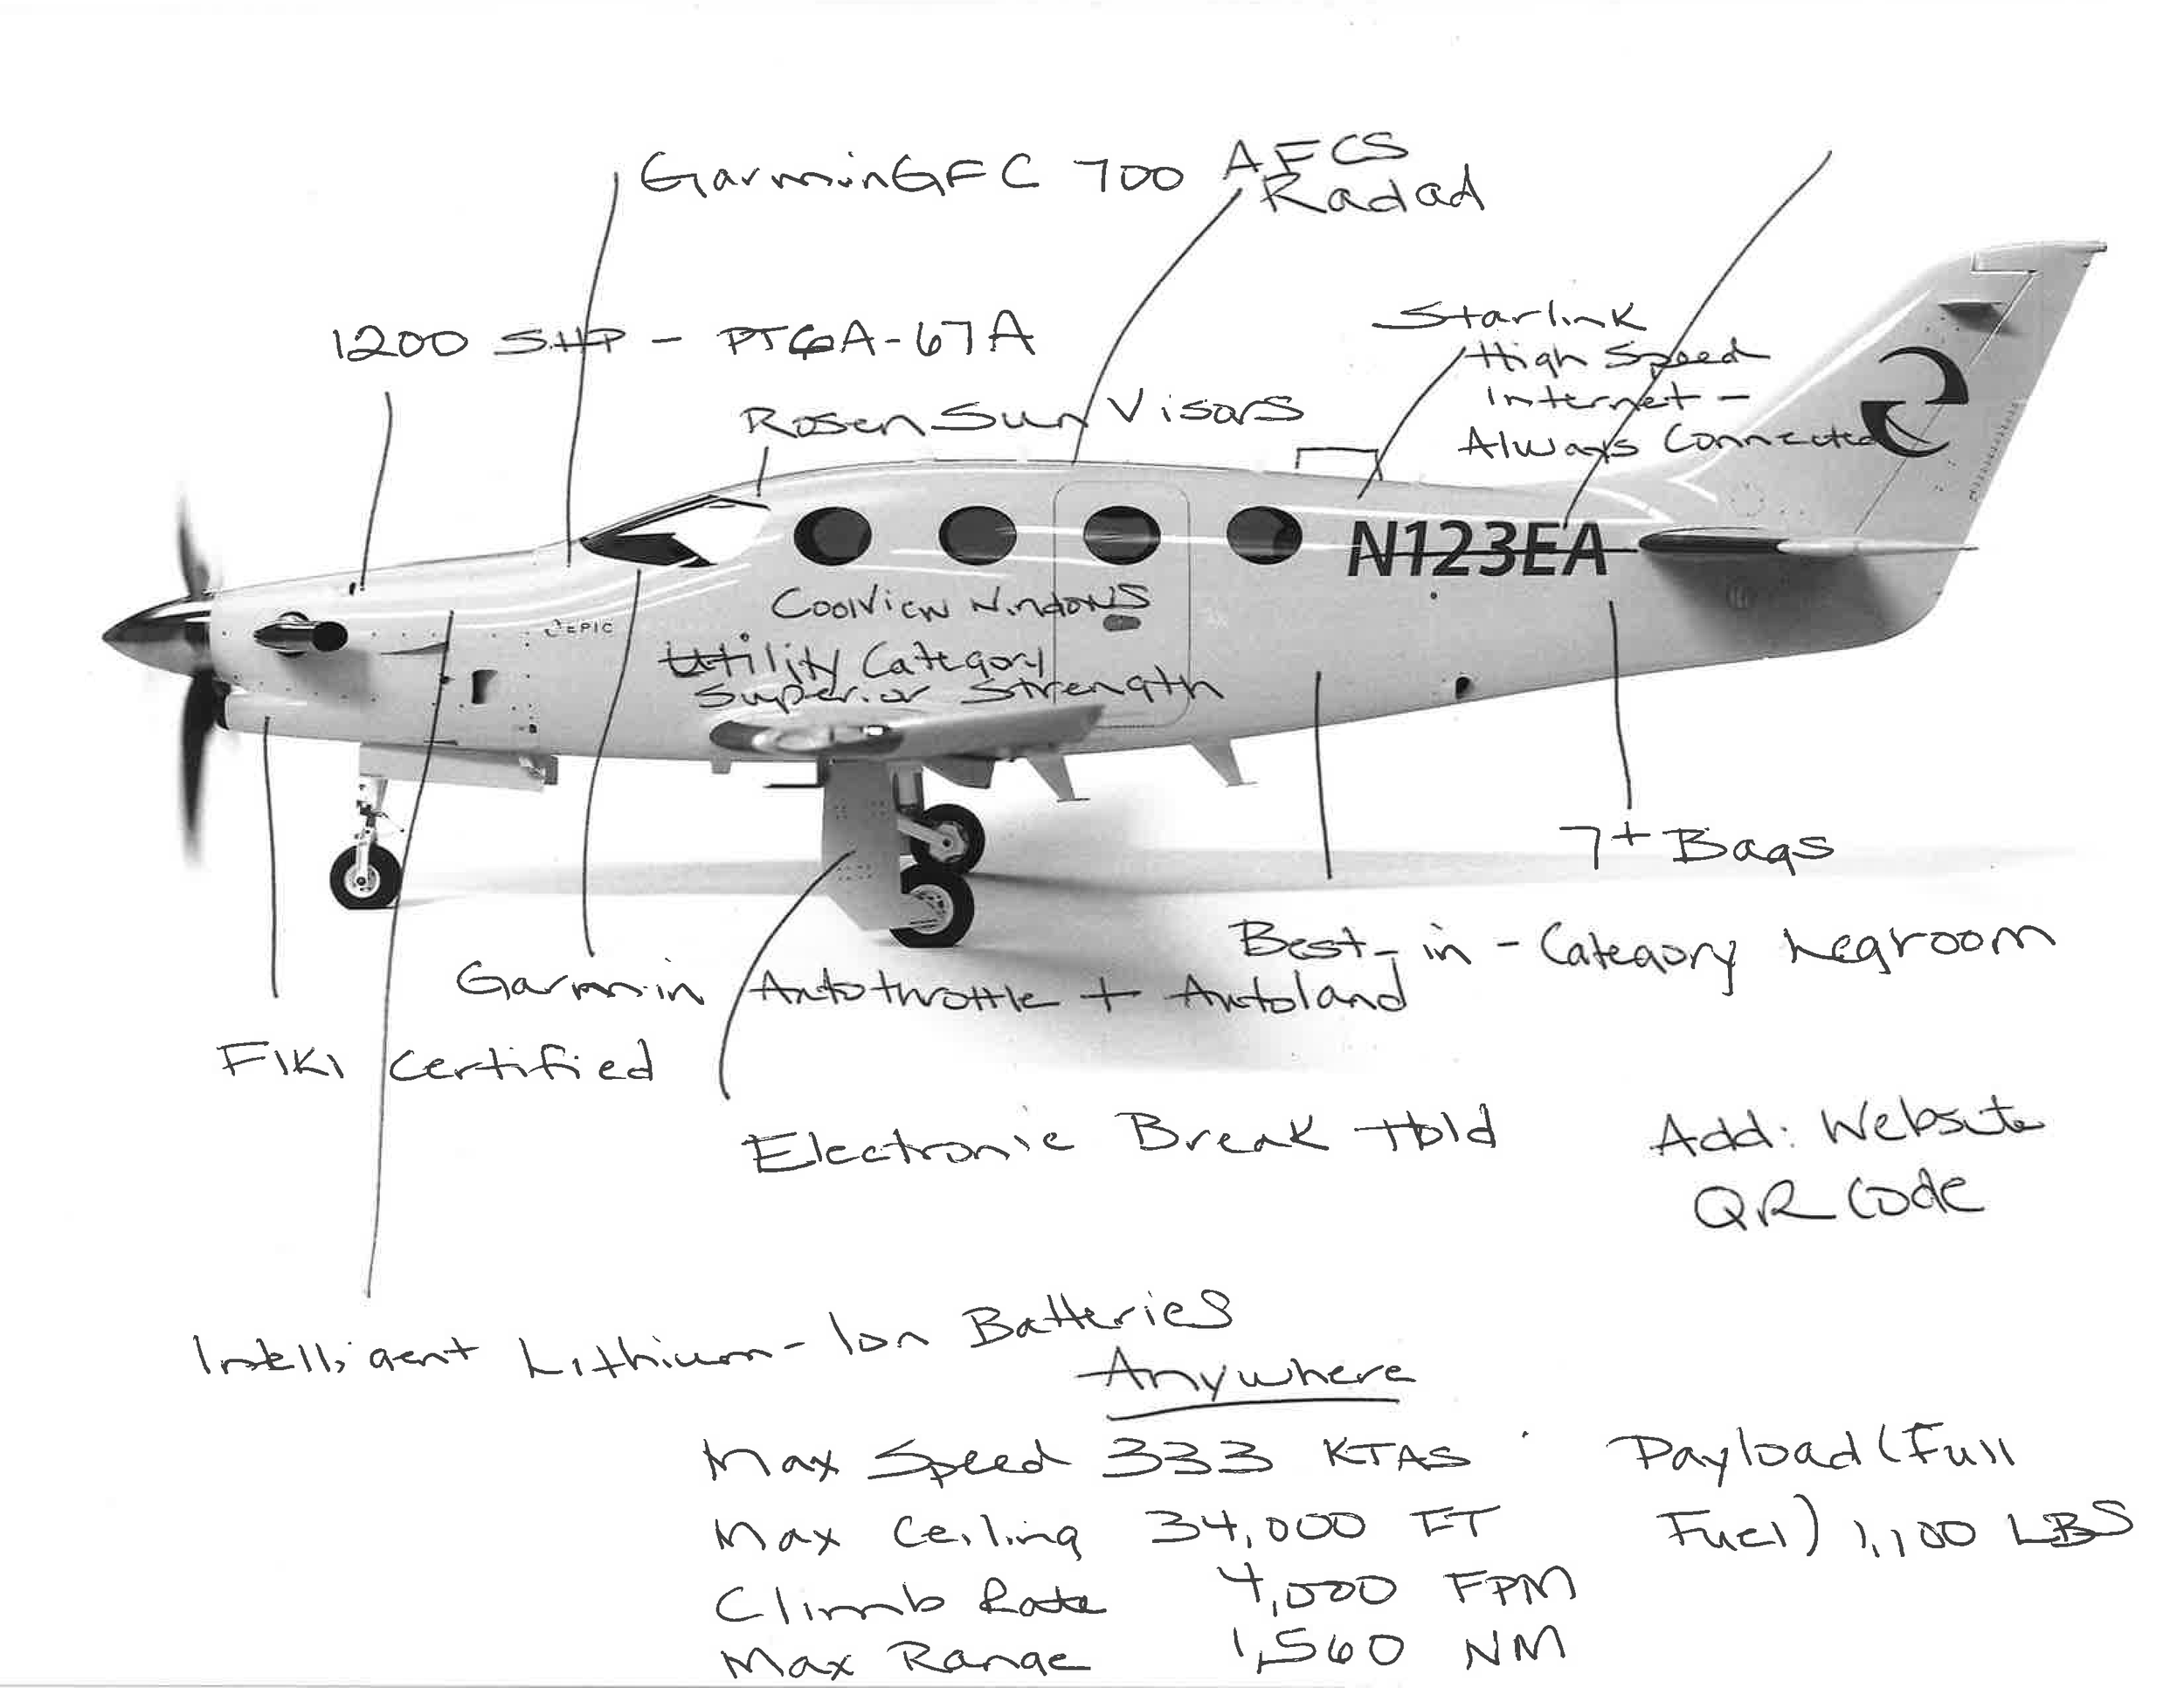 GarminGFC 700 AFCS
Radad
1200 SHP - PT6A-67A
Starlink
High Speed
Internet -
Always Connected
Rosen Sun Visors
N123EA
CoolView Windows
EPIC
Utility Category
Superior Strength
7+ Bags
Best-in-Category Legroom
Garmin Autothrottle + Autoland
FIKI Certified
Electronic Break Hold
Add: Website
QR Code
Intelligent Lithium-Ion Batteries
Anywhere
Max Speed 333 KTAS
Payload (Full
Max Ceiling 34,000 FT
Fuel) 1,100 LBS
Climb Rate 4,000 FPM
Max Range 1,560 NM